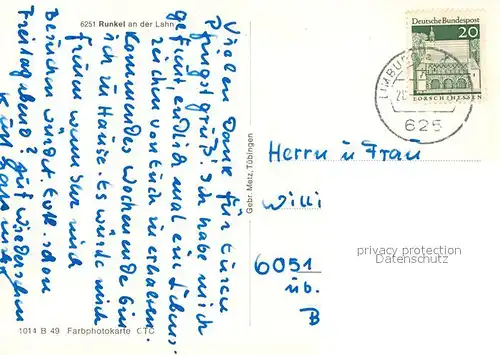 6251 Runkel an der Lahn
Vielen Dank für Euren
Pfingstgruß! Ich habe mich
gefreut, endlich mal ein Lebens-
zeichen von Euch zu erhalten.
Kommendes Wochenende bin
ich zu Hause. Es würde mich
freuen, wenn Ihr mich
besuchen würdet. Evtl. schon
Freitagabend? Auf Wiedersehen
1014 B 49 Farbphotokarte CTC
Gebr. Metz, Tübingen
Deutsche Bundespost
20
LORSCH/HESSEN
LIMBURG
625
Herrn u Frau
Willi
6051
üb.
B
privacy protection
Datenschutz